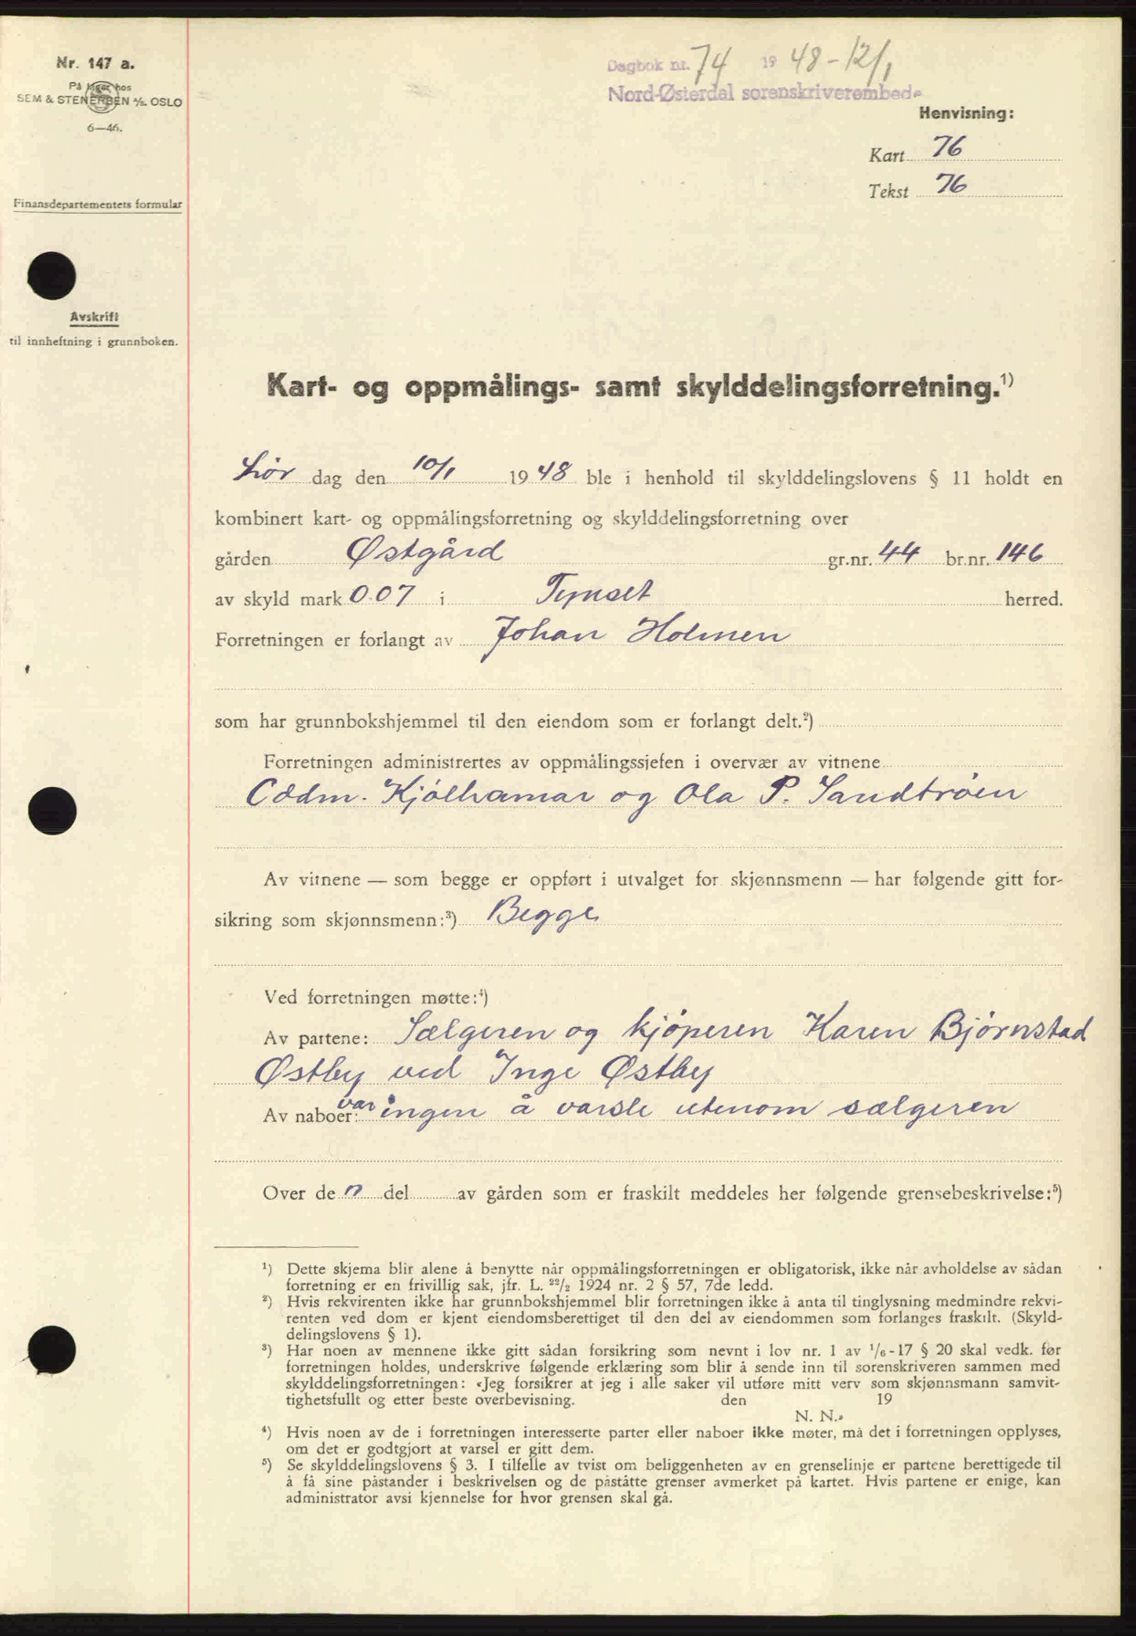 Nr. 147 a.
På lager hos
SEM & STENERSEN A/S. OSLO
6—46.
Finansdepartementets formular
Avskrift
til innheftning i grunnboken.
Dagbok nr. 74 1948-12/1
Nord-Østerdal sorenskriverembede
Henvisning:
Kart 76
Tekst 76
Kart- og oppmålings- samt skylddelingsforretning.¹)
Lør dag den 10/1 1948 ble i henhold til skylddelingslovens § 11 holdt en
kombinert kart- og oppmålingsforretning og skylddelingsforretning over
gården Østgård gr.nr. 44 br.nr. 146
av skyld mark 0.07 i Tynset herred.
Forretningen er forlangt av Johan Holmen
som har grunnbokshjemmel til den eiendom som er forlangt delt.²)
Forretningen administrertes av oppmålingssjefen i overvær av vitnene
Oddm. Kjølhamar og Ola P. Sandtrøen
Av vitnene — som begge er oppført i utvalget for skjønnsmenn — har følgende gitt for-
sikring som skjønnsmenn:³) Begge
Ved forretningen møtte:⁴)
Av partene: Sælgeren og kjøperen Karen Bjørnstad
Østby ved Inge Østby
Av naboer: var ingen å varsle utenom sælgeren
Over de n del av gården som er fraskilt meddeles her følgende grensebeskrivelse:⁵)
¹) Dette skjema blir alene å benytte når oppmålingsforretningen er obligatorisk, ikke når avholdelse av sådan
forretning er en frivillig sak, jfr. L. 22/2 1924 nr. 2 § 57, 7de ledd.
²) Hvis rekvirenten ikke har grunnbokshjemmel blir forretningen ikke å anta til tinglysning medmindre rekvi-
renten ved dom er kjent eiendomsberettiget til den del av eiendommen som forlanges fraskilt. (Skyld-
delingslovens § 1).
³) Har noen av mennene ikke gitt sådan forsikring som nevnt i lov nr. 1 av 1/6-17 § 20 skal vedk. før
forretningen holdes, underskrive følgende erklæring som blir å sende inn til sorenskriveren sammen med
skylddelingsforretningen: «Jeg forsikrer at jeg i alle saker vil utføre mitt verv som skjønnsmann samvit-
tighetsfullt og etter beste overbevisning. den 19
N. N.»
⁴) Hvis noen av de i forretningen interesserte parter eller naboer ikke møter, må det i forretningen opplyses,
om det er godtgjort at varsel er gitt dem.
⁵) Se skylddelingslovens § 3. I tilfelle av tvist om beliggenheten av en grenselinje er partene berettigede til
å få sine påstander i beskrivelsen og de påståtte grenser avmerket på kartet. Hvis partene er enige, kan
administrator avsi kjennelse for hvor grensen skal gå.